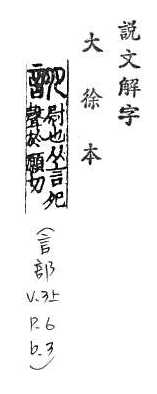 説文解字
大徐本
尉也从言夗
聲於願切
(言部
v.3上
P.6
b.3)